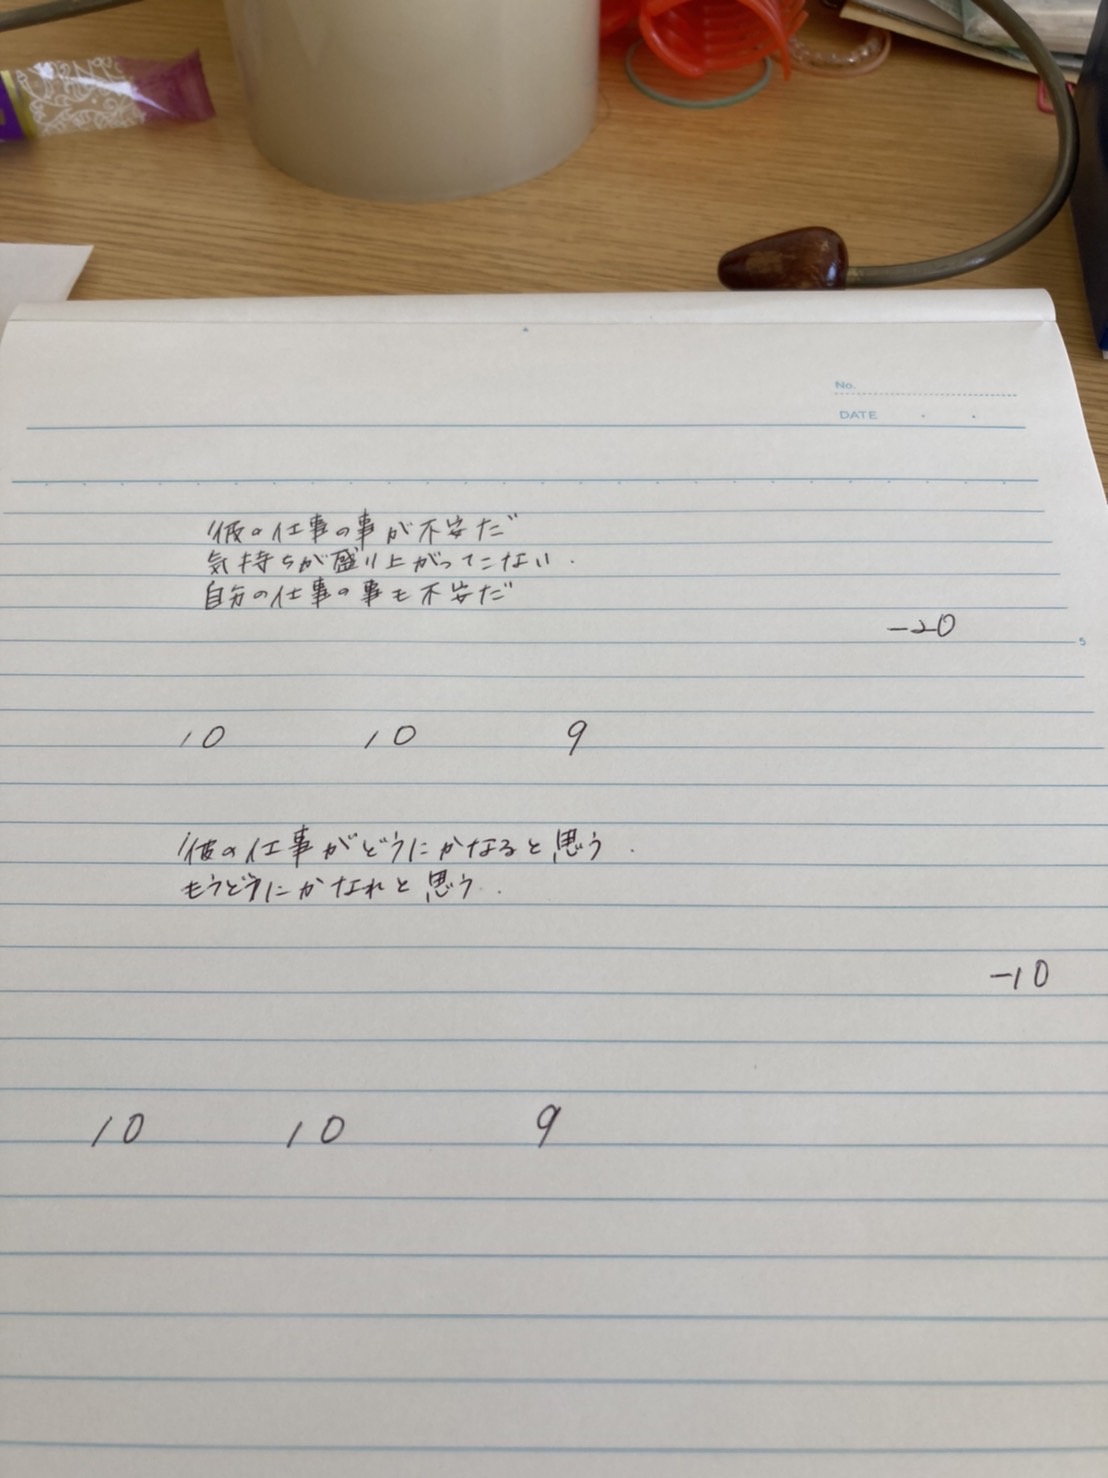 No.
DATE
彼の仕事の事が不安だ
気持ちが盛り上がってこない.
自分の仕事の事も不安だ
-20
5
10 10 9
彼の仕事がどうにかなると思う.
もうどうにかなれと思う.
-10
10 10 9